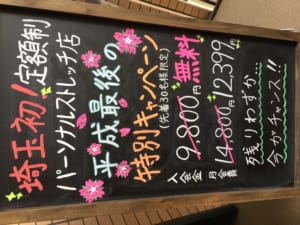 埼玉初!定額制
パーソナルストレッチ店
平成最後の
特別キャンペーン
(先着30名様限定)
入会金 9,800円 無料
月会費 14,800円 12,399円
残りわずか…
今がチャンス!!